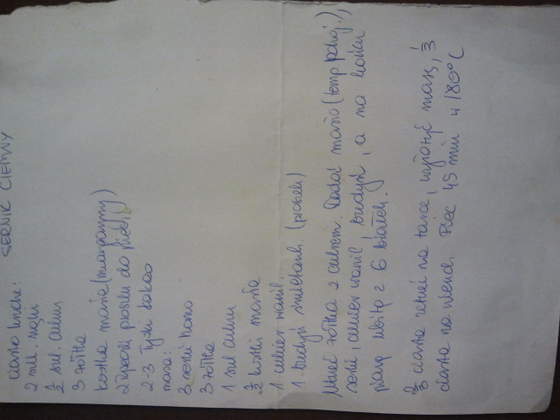 SERNIK CIEMNY
ciasto kruche:
2 szkl. mąki
1/2 szkl. cukru
3 żółtka
kostka masła (margaryny)
2 łyżeczki proszku do piecz.
2-3 łyżki kakao
masa:
3 serki homo
3 żółtka
1 szkl cukru
1/2 kostki masła
1 cukier wanil.
1 budyń śmietank. (proszek)
Utrzeć żółtka z cukrem. Dodać masło (temp. pokoj.),
serki, cukier wanil. budyń, a na końcu
pianę ubitą z 6 białek.
2/3 ciasta zetrzeć na tarce, wyłożyć masę, 1/3
ciasta na wierzch. Piec 45 min w 180°C